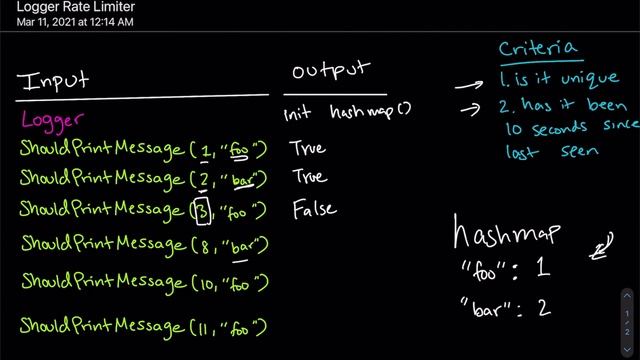 Logger Rate Limiter
Mar 11, 2021 at 12:14 AM
Input
Output
Criteria
1. is it unique
2. has it been
10 seconds since
last seen
Logger
init hashmap()
ShouldPrintMessage (1, "foo")
True
ShouldPrintMessage (2, "bar")
True
ShouldPrintMessage (3, "foo")
False
ShouldPrintMessage (8, "bar")
ShouldPrintMessage (10, "foo")
ShouldPrintMessage (11, "foo")
hashmap
"foo": 1
"bar": 2
1
/
2